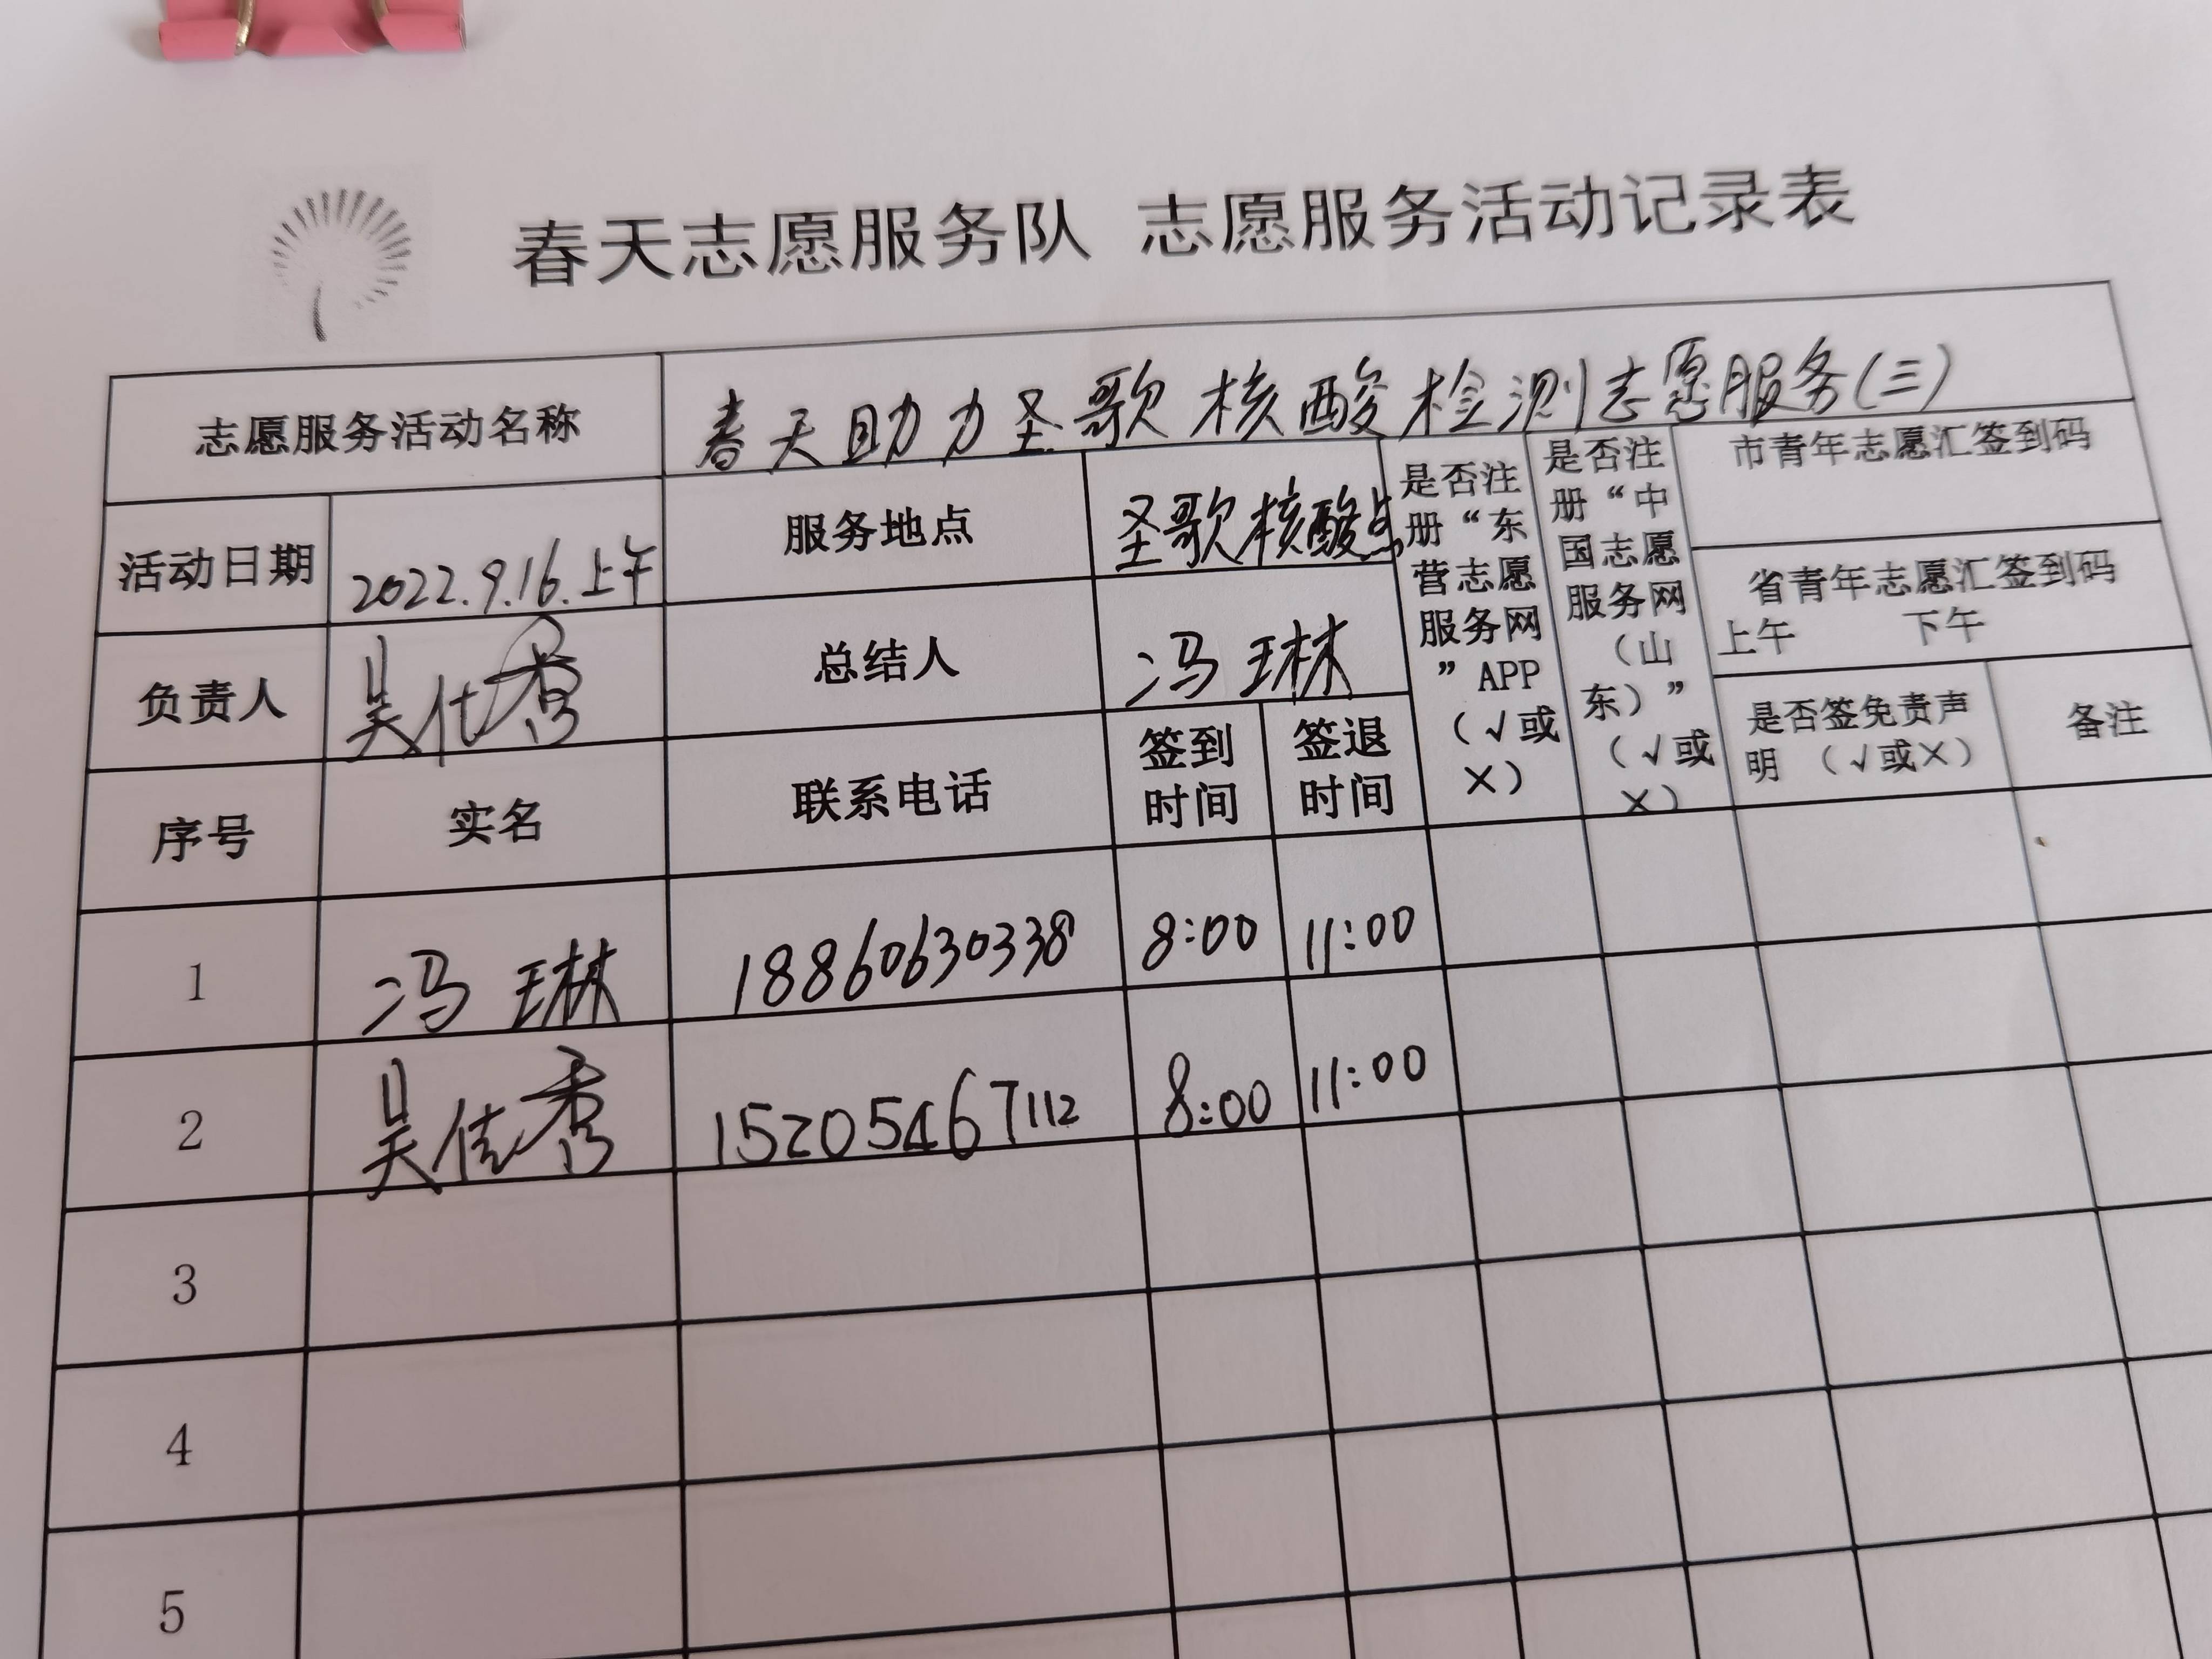 春天志愿服务队 志愿服务活动记录表
志愿服务活动名称 春天助力圣歌核酸检测志愿服务(三)
活动日期 2022.9.16.上午 服务地点 圣歌核酸点
负责人 吴佳秀 总结人 冯琳
是否注
册“东
营志愿
服务网
”APP
(√或
×)
是否注
册“中
国志愿
服务网
(山
东)”
(√或
×)
市青年志愿汇签到码
省青年志愿汇签到码
上午 下午
是否签免责声
明 (√或×)
备注
序号 实名 联系电话
签到
时间
签退
时间
1 冯琳 18860630338 8:00 11:00
2 吴佳秀 15205467112 8:00 11:00
3
4
5